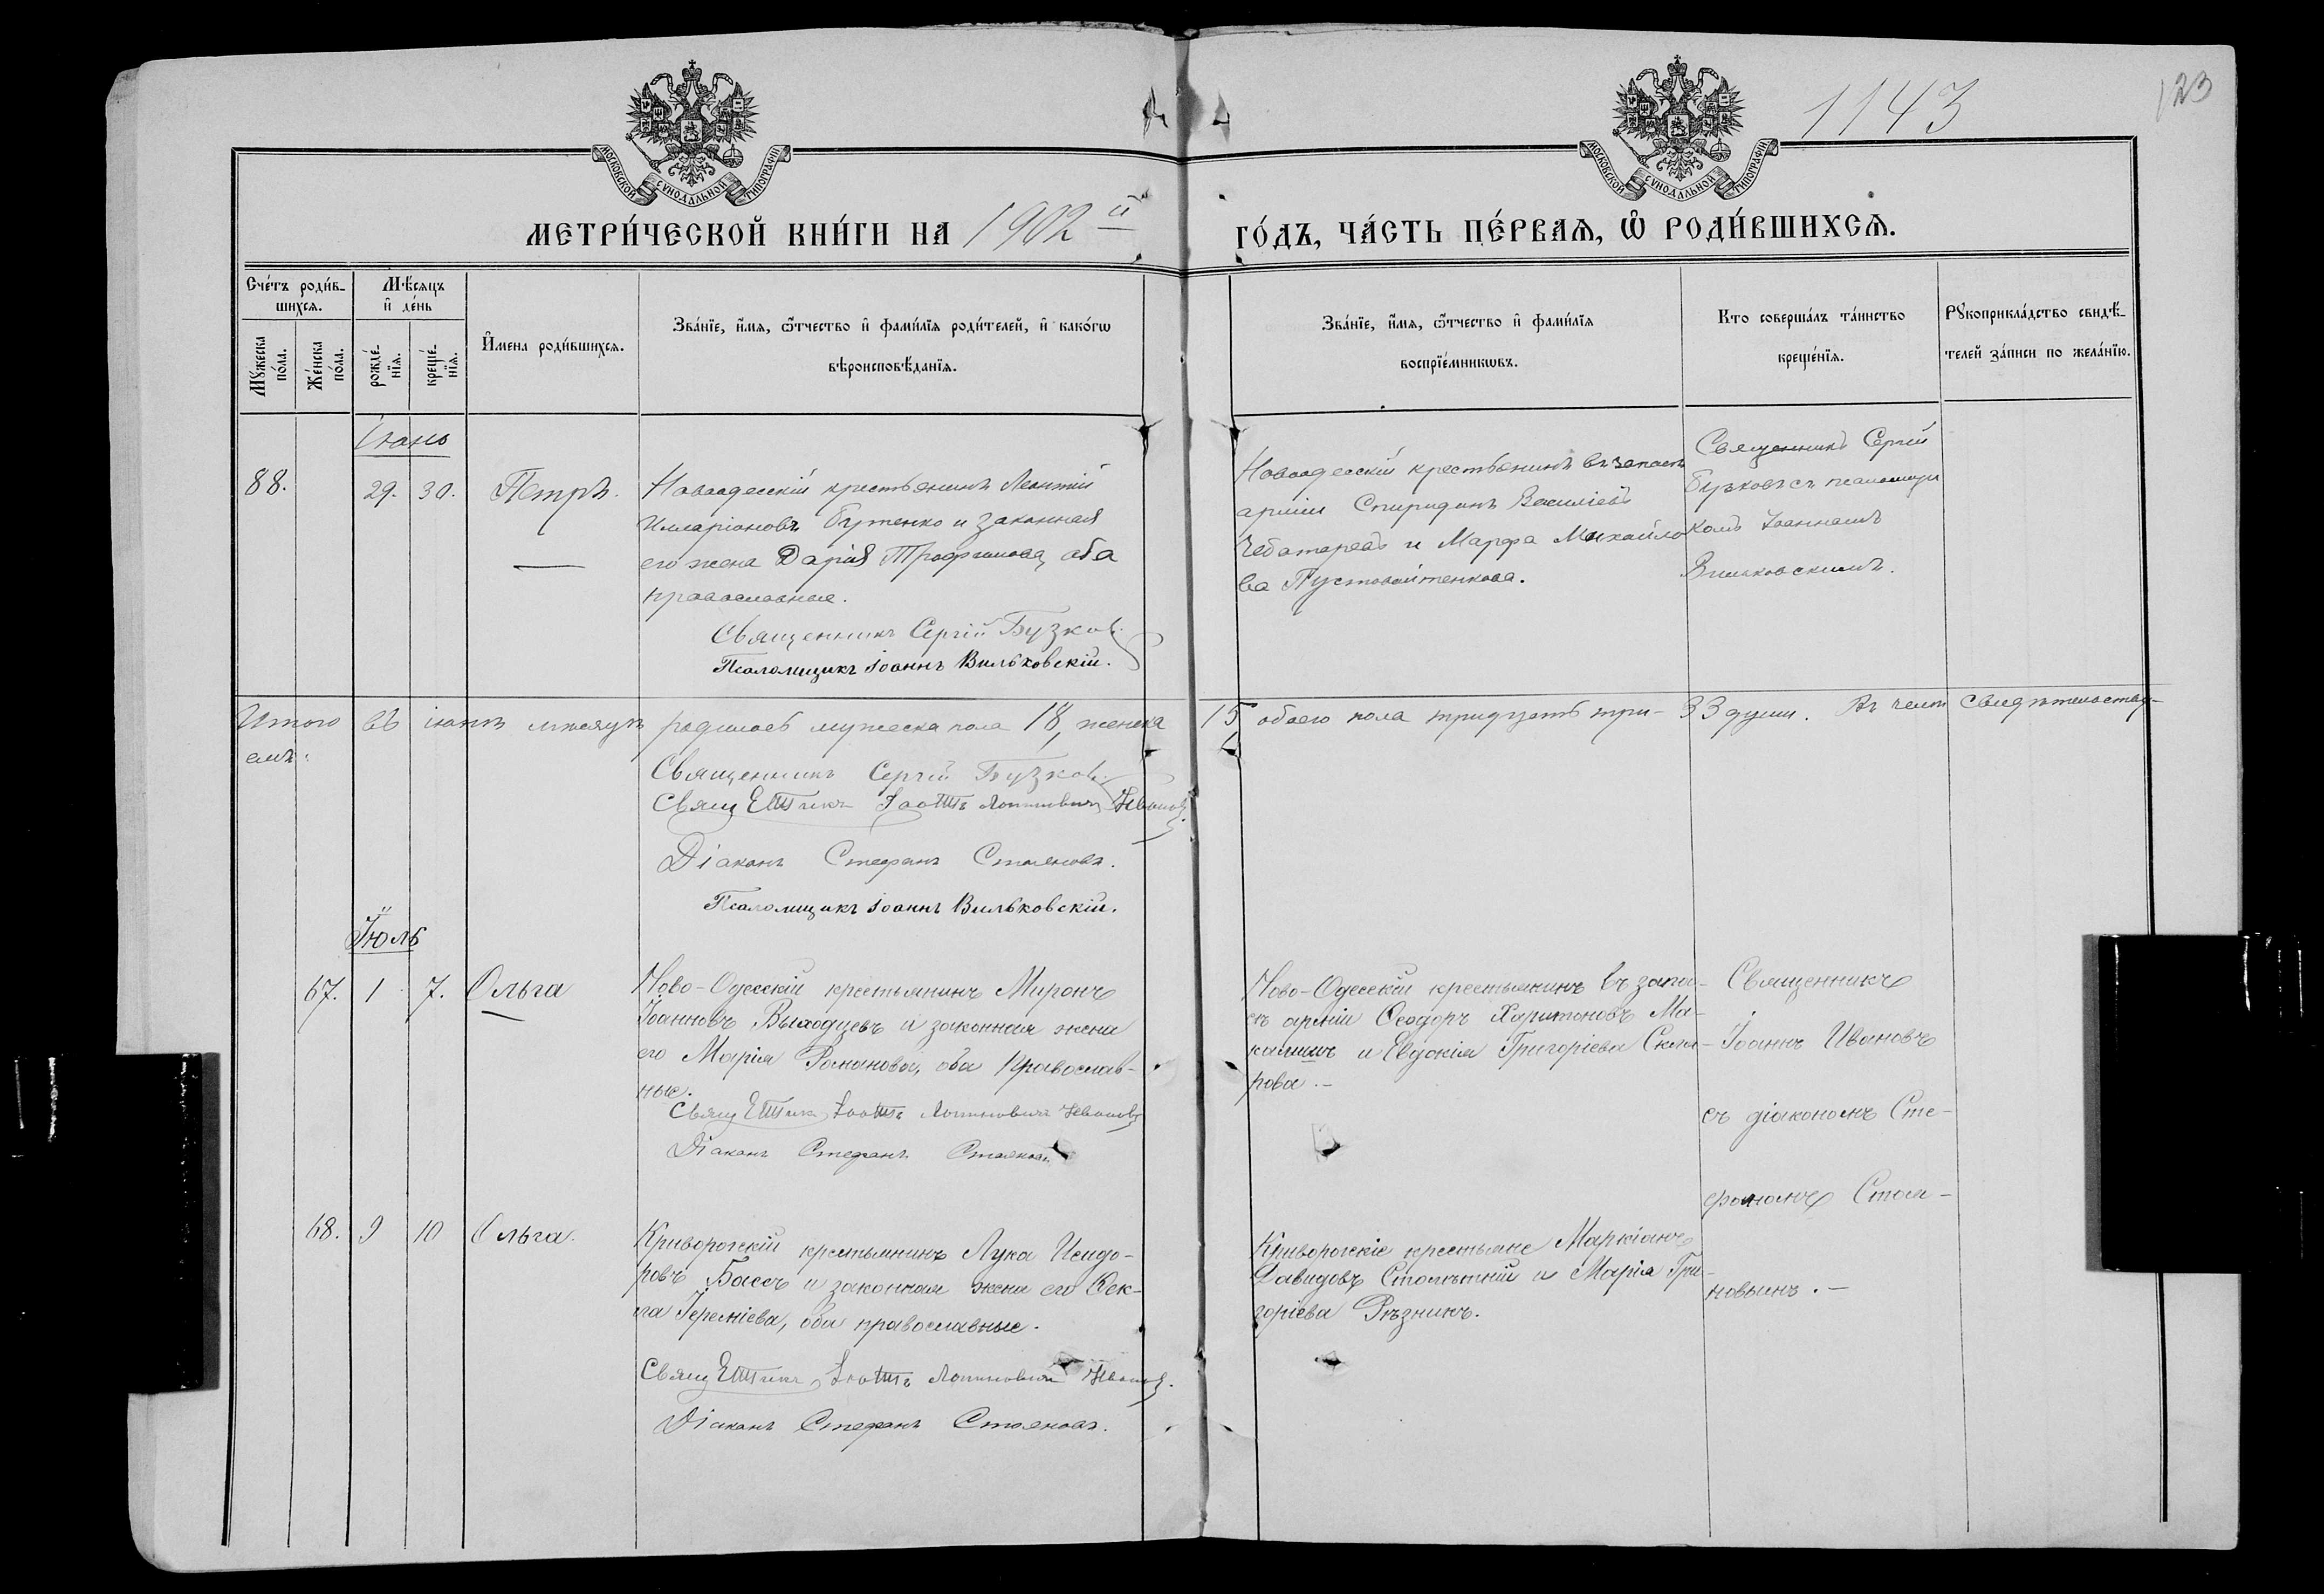 1143
123
МОСКОВСКОЙ СѴНОДАЛЬНОЙ ТИПОГРАФІИ
МОСКОВСКОЙ СѴНОДАЛЬНОЙ ТИПОГРАФІИ
МЕТРИ́ЧЕСКОЙ КНИ́ГИ НА 1902 й
ГО́ДЪ, ЧА́СТЬ ПЕ́РВАѦ, Ѡ҆ РОДИ́ВШИХСѦ.
Сче́тъ роди́в-
шихсѧ.
Мꙋ́жеска по́ла.
Же́нска по́ла.
Мѣ́сѧцъ
и҆ де́нь
рожде́-
нїѧ.
креще́-
нїѧ.
И҆мена роди́вшихсѧ.
Зва́нїе, и҆́мѧ, ѻ҆́тчество и҆ фами́лїѧ роди́телей, и҆ како́гѡ
вѣроисповѣ́данїѧ.
Зва́нїе, и҆́мѧ, ѻ҆́тчество и҆ фами́лїѧ
воспрїе́мникѡвъ.
Кто соверша́лъ та́инство
креще́нїѧ.
Рꙋкоприкла́дство свидѣ́-
телей за́писи по жела́нїю.
Іюнь
88. 29. 30. Петръ.
Новоодесскій крестьянинъ Леонтій
Илларіоновъ Бутенко и законная
его жена Дарія Трофимова, оба
православные.
Священникъ Сергій Бузков.
Псаломщикъ Іоаннъ Вильковскій.
Новоодесскій крестьянинъ въ запасѣ
арміи Спиридонъ Василіевъ
Чеботаревъ и Марфа Михайло
ва Пустовойтенкова.
Священникъ Сергій
Бузковъ съ псаломщи
комъ Іоанномъ
Вильковскимъ.
Итого въ іюнѣ мѣсяцѣ родилось мужеска пола 18, женска 15 обоего пола тридцать три - 33 души. Въ чемъ свидѣтельству-
емъ:
Священникъ Сергій Бузков.
Священникъ Іоаннъ Иванов.
Діаконъ Стефанъ Стояновъ.
Псаломщикъ Іоаннъ Вильковскій.
Іюль
67. 1 7. Ольга
Ново-Одесскій крестьянинъ Миронъ
Іоанновъ Выходцевъ и законная жена
его Марія Романова, оба православ-
ные.
Священникъ Іоаннъ Ивановъ
Діаконъ Стефанъ Стояновъ
Ново-Одесскій крестьянинъ въ запа-
сѣ арміи Ѳеодоръ Харитоновъ Ма-
калишъ и Евдокія Григоріева Скля-
рова. -
Священникъ
Іоаннъ Ивановъ
съ діакономъ Сте-
фаномъ Стоя-
новымъ. -
68. 9 10 Ольга.
Криворожскій крестьянинъ Лука Исидо-
ровъ Бассъ и законная жена его Ѳек-
ла Іереміева, оба православные.
Священникъ Іоаннъ Иванов.
Діаконъ Стефанъ Стояновъ.
Криворожскіе крестьяне Маркіанъ
Давидовъ Столѣтній и Марія Гри-
горіева Рѣзникъ.